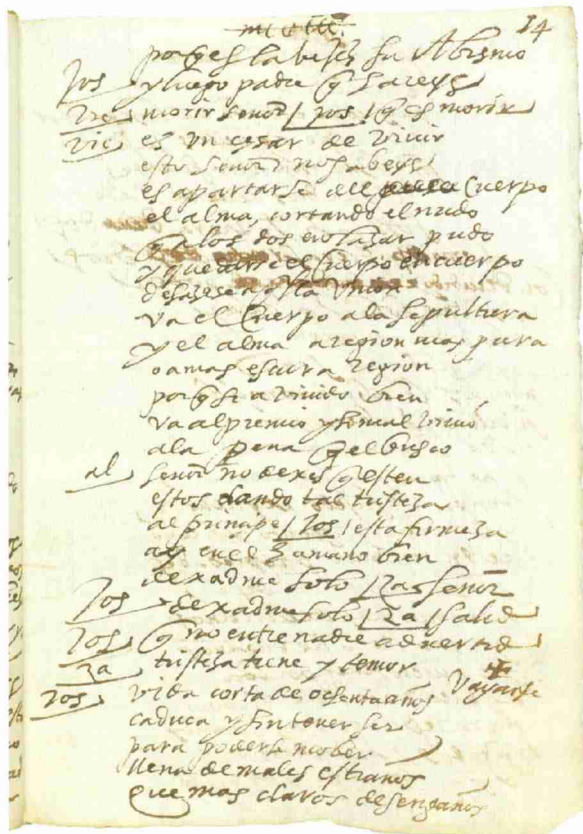 14
porq̃ es la vejez su Abismo
Jos y luego padre q̃ sareys
vie morir señor / Jos / q̃ es morir
vie es un cesar de vivir
esto señor no sabeys
es apartarse del cuerpo
el alma, cortando el nudo
q̃ a los dos enlazar pudo
y quedarse el cuerpo en cuerpo
desasese a q̃sta union
va el cuerpo a la sepultura
y el alma a region mas pura
o a mas escura region
porq̃ si a vivido bien
va al premio y si mal vivió
a la pena q̃ el busco
al señor no dexes q̃ esten
estos dando tal tristeza
al principe / Jos / esta firmeza
ay en el umano bien
dexadme solo / za / señor
Jos dexadme solo / za / salid
Jos q̃ no entre nadie advertid
za tristeza tiene y temor
vayanse
Jos vida corta de ochenta años
caduca y sin tener ser
para poderte mober
llena de males estraños
que mas claros desengaños